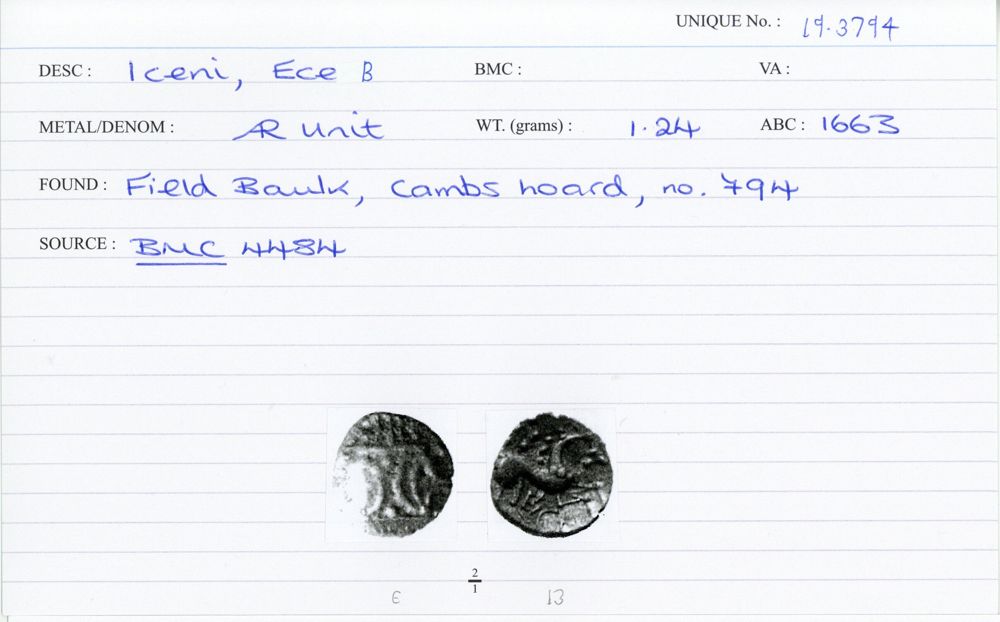 UNIQUE No. : 19.3794
DESC : Iceni, Ece B BMC : VA :
METAL/DENOM : AR Unit WT. (grams) : 1.24 ABC : 1663
FOUND : Field Baulk, Cambs hoard, no. 794
SOURCE : BMC 4484
2
1
E 13